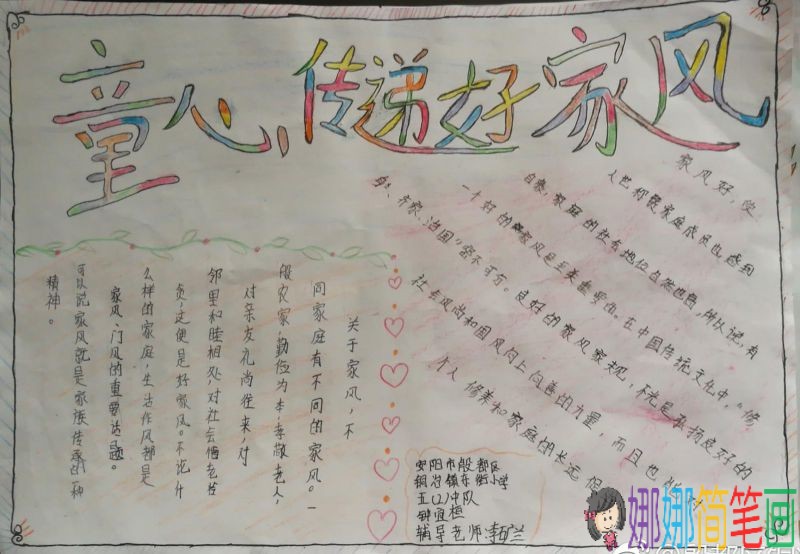 童心,传递好家风
关于家风,不
同家庭有不同的家风。一
般农家,勤俭为本,孝敬老人,
对亲友礼尚往来,对
邻里和睦相处,对社会
责,这便是好家风。不论什
么样的家庭,生活作风都是
家风、门风的重要话题。
可以说家风就是家族传承的一种
精神。
家风好,使
人艺和 家庭成员也感到
自豪,家庭的社会地位自然也高,所以说,有
一个好的家风是至关重要的。在中国传统文化中,“修
身、齐家、治国”密不可分。良好的家风家规,不光是承扬良好的
社会风尚和国风向上向善的力量,而且也
个人修养和家庭的长远
安阳市殷都区
铜冶镇东街小学
五(2)中队
钟宜桓
辅导老师:李矿兰
娜娜简笔画